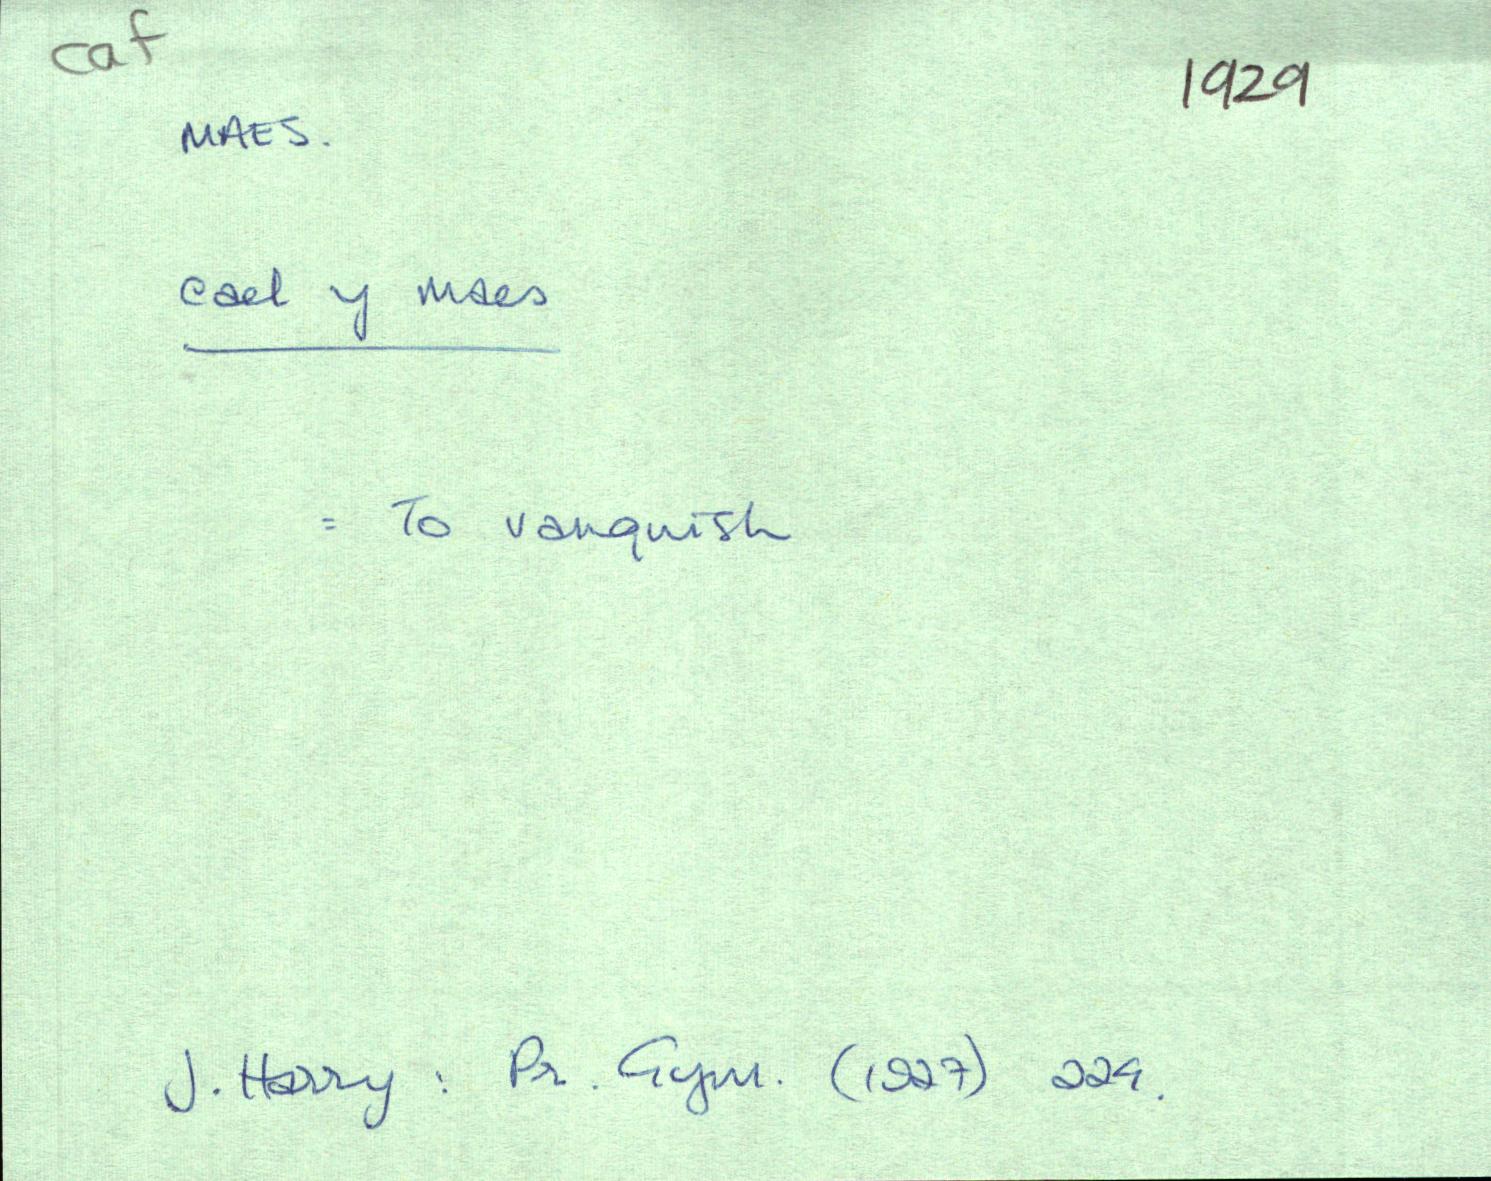 caf
1929
MAES.
cael y maes
= To vanquish
J. Harry : Pr. Gym. (1927) 224.